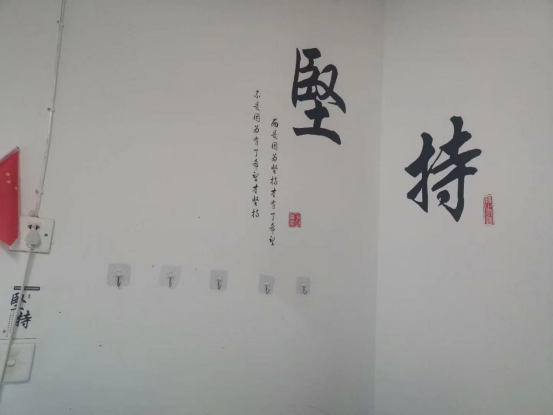 堅持
不是因为有了希望才堅持
而是因为堅持才有了希望
堅持